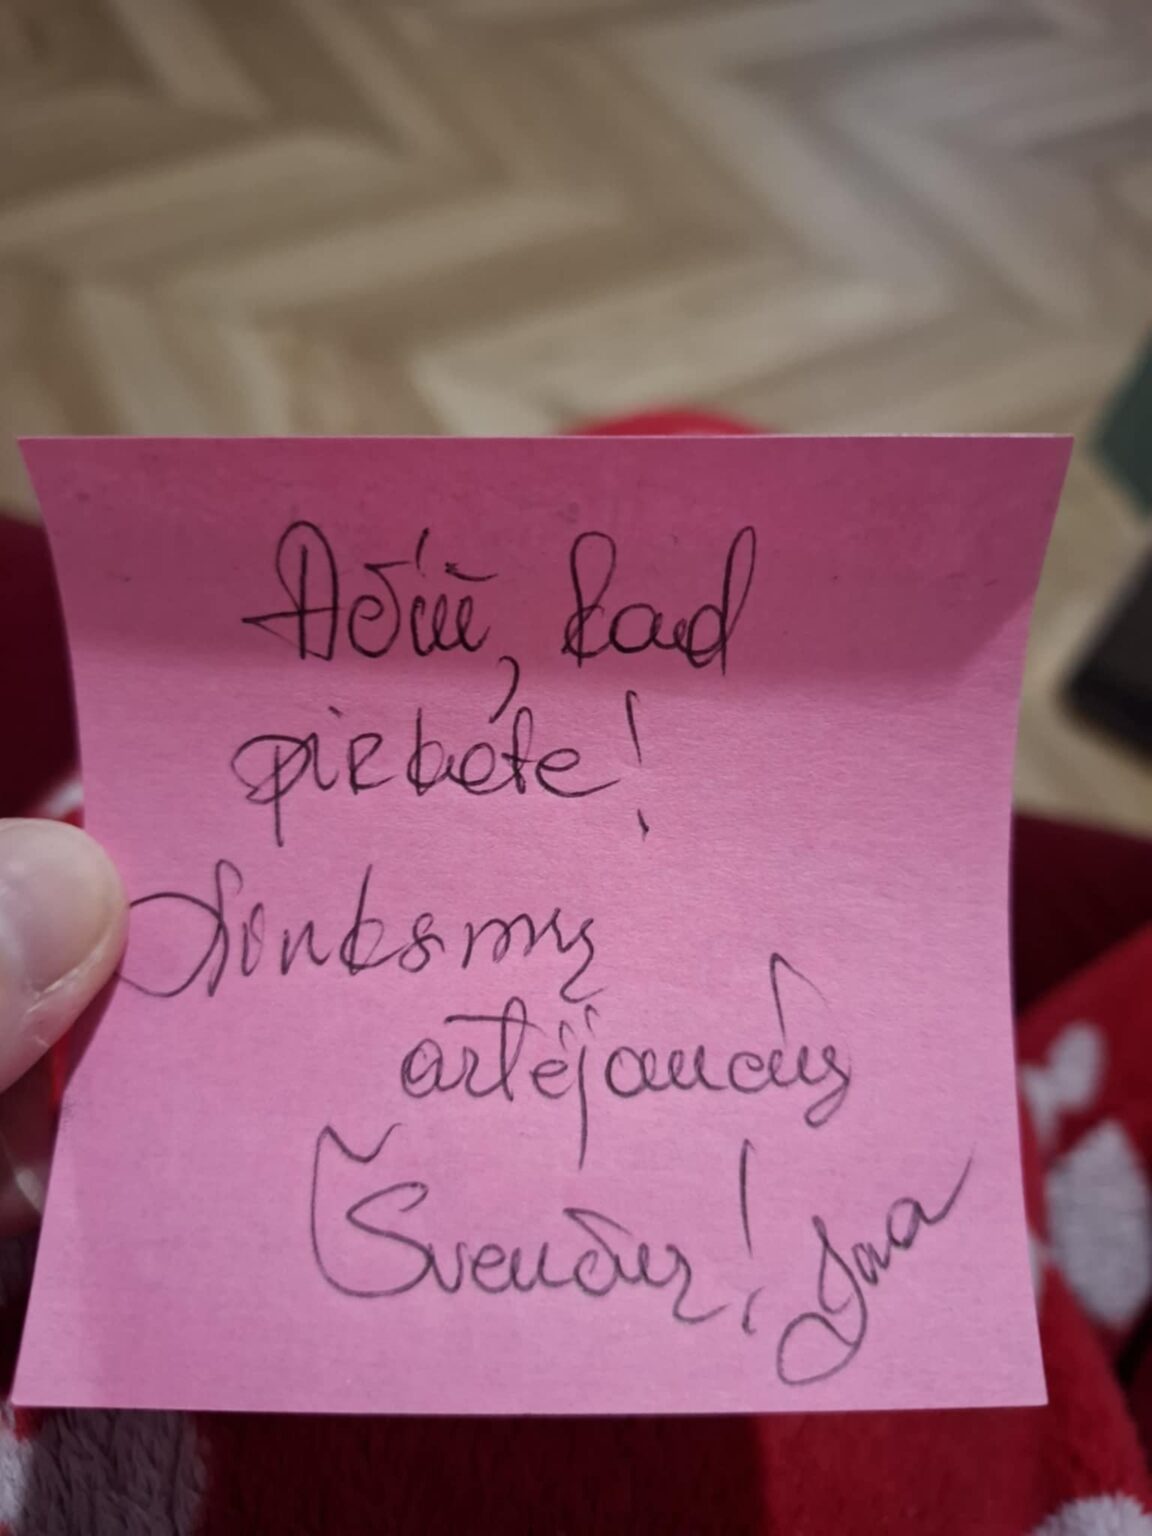 Ačiū, kad
pirkote!
Linksmų
artėjančių
Švenčių!